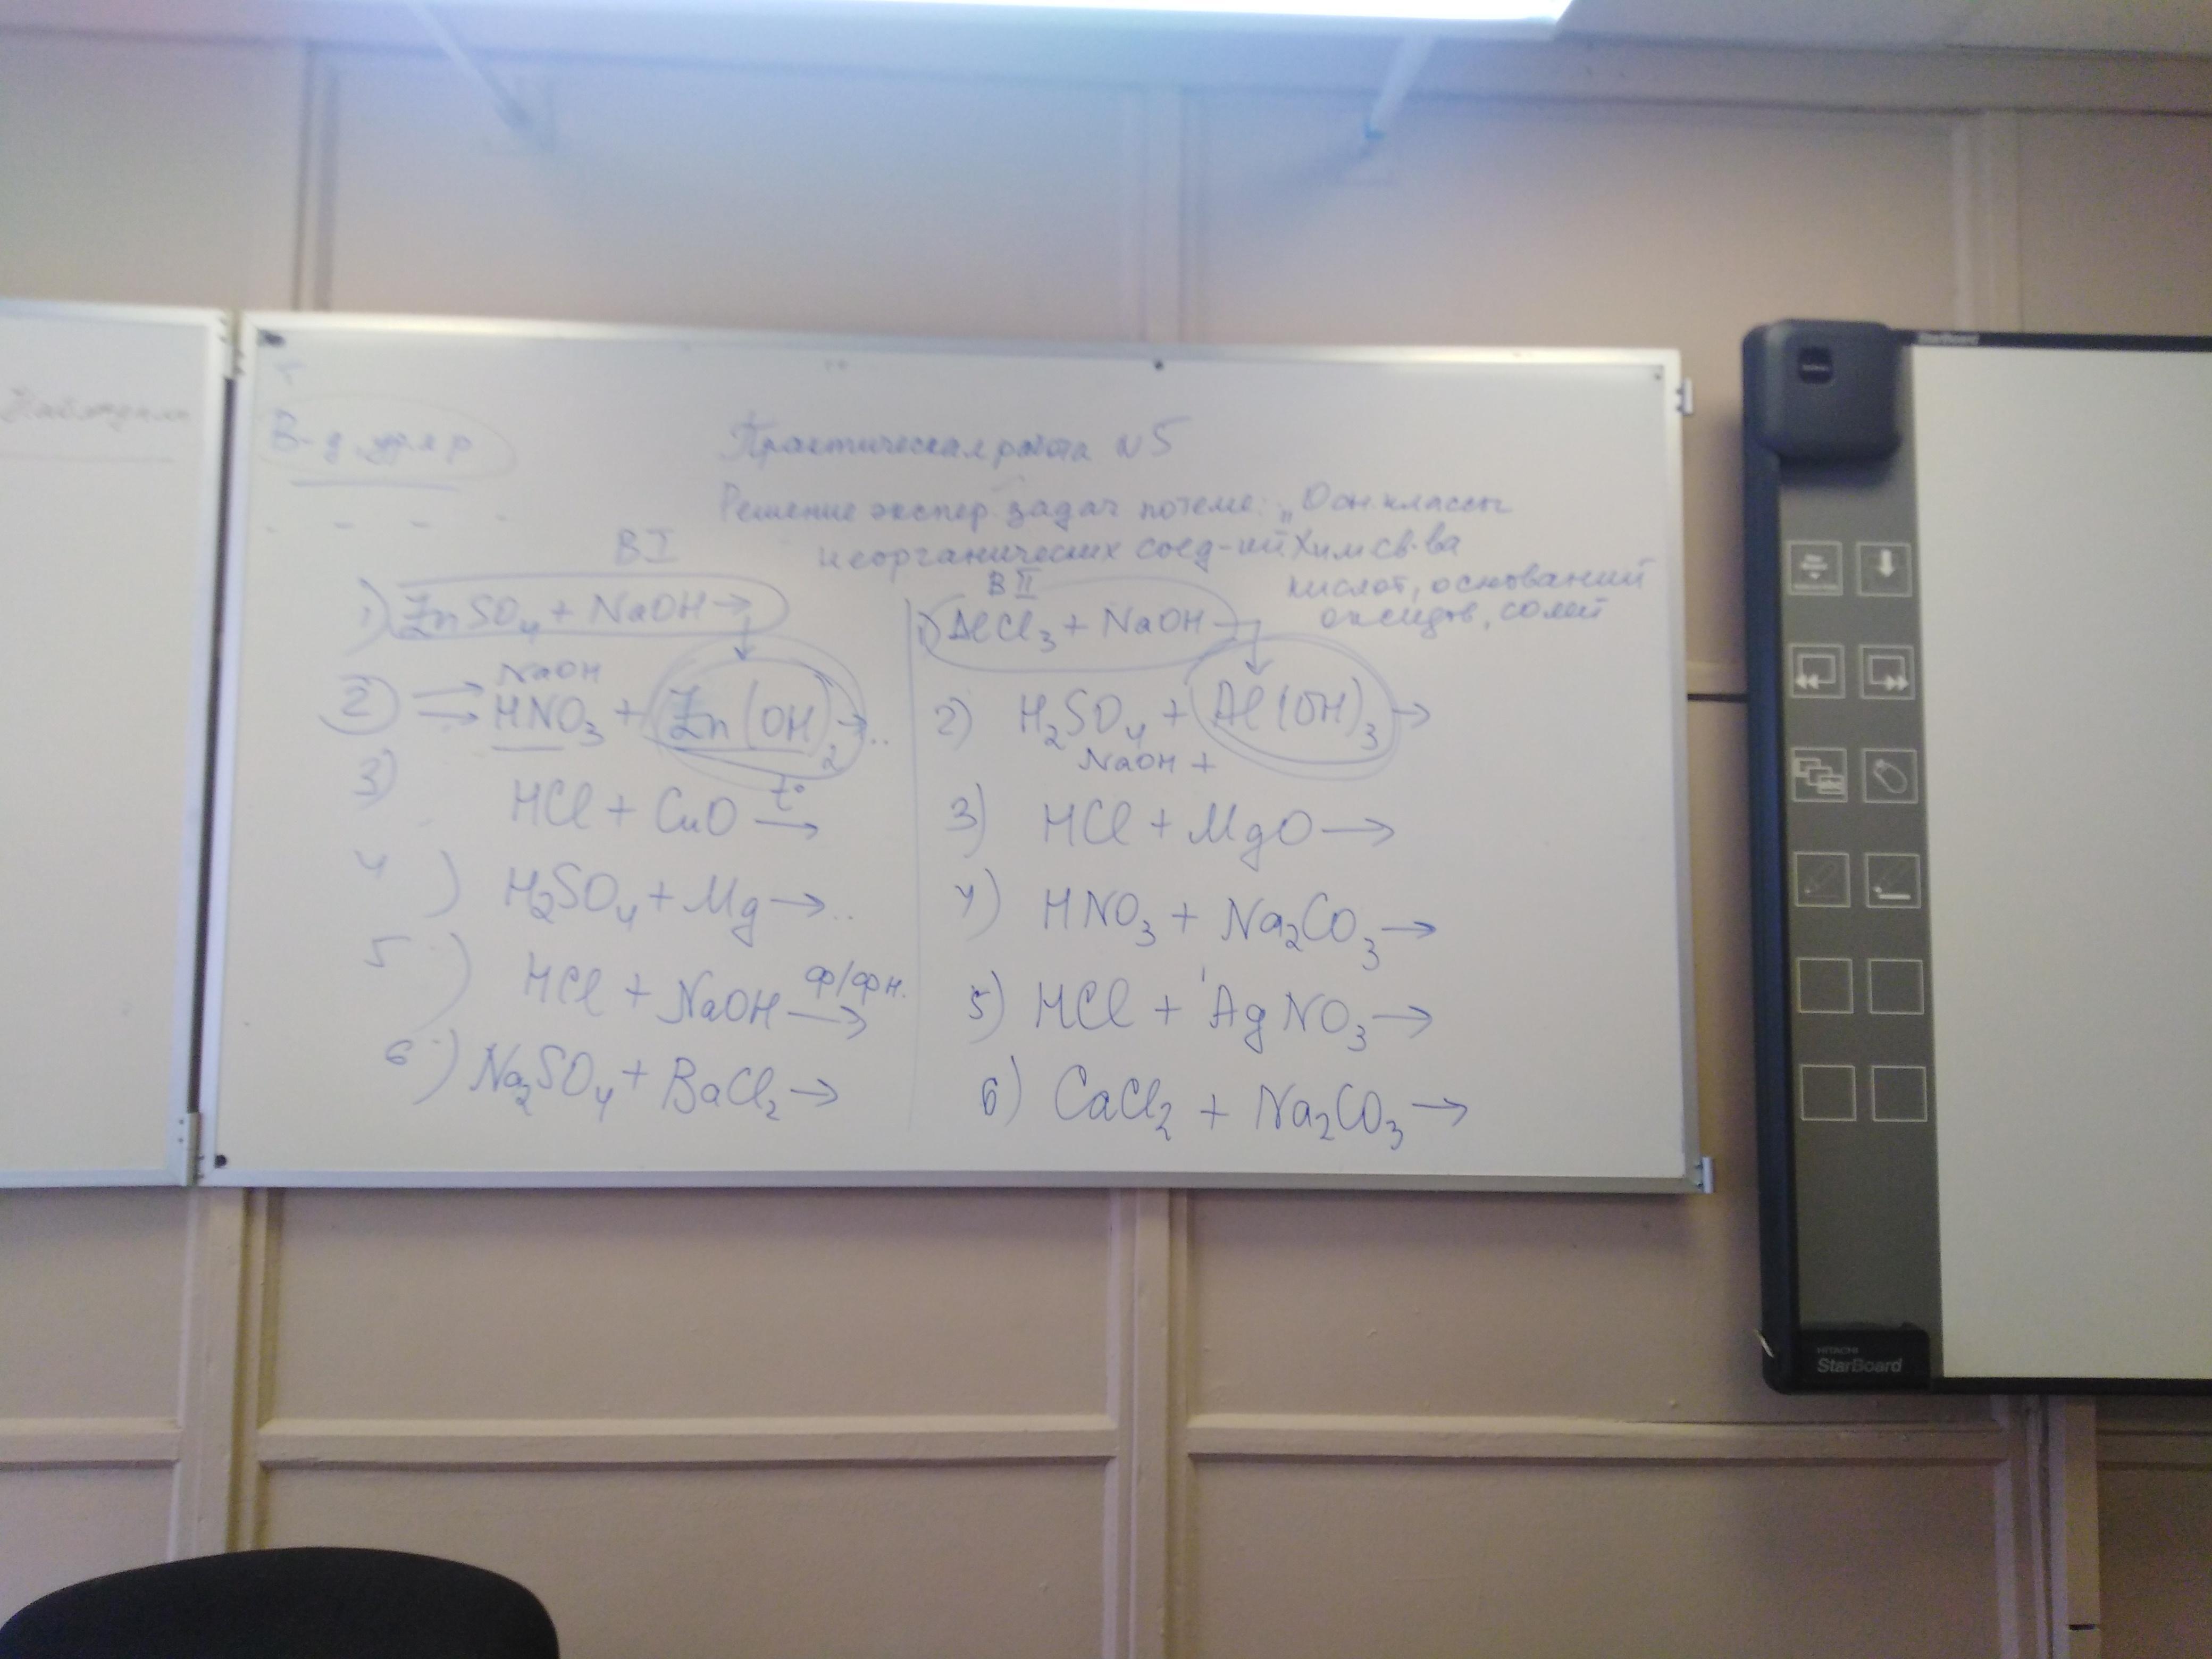 Практическая работа N5
Решение экспер. задач по теме: „Осн. классы
неорганических соед-ний Хим св-ва
кислот, оснований
оксидов, солей
В I
1) ZnSO₄ + NaOH →
↓
NaOH
2) HNO₃ + Zn(OH)₂ → ..
3) HCl + CuO t° →
4) H₂SO₄ + Mg → ..
5) HCl + NaOH ф/фн. →
6) Na₂SO₄ + BaCl₂ →
В II
1) AlCl₃ + NaOH →
↓
2) H₂SO₄ + Al(OH)₃ →
NaOH +
3) HCl + MgO →
4) HNO₃ + Na₂CO₃ →
5) HCl + AgNO₃ →
6) CaCl₂ + Na₂CO₃ →
StarBoard
HITACHI
StarBoard